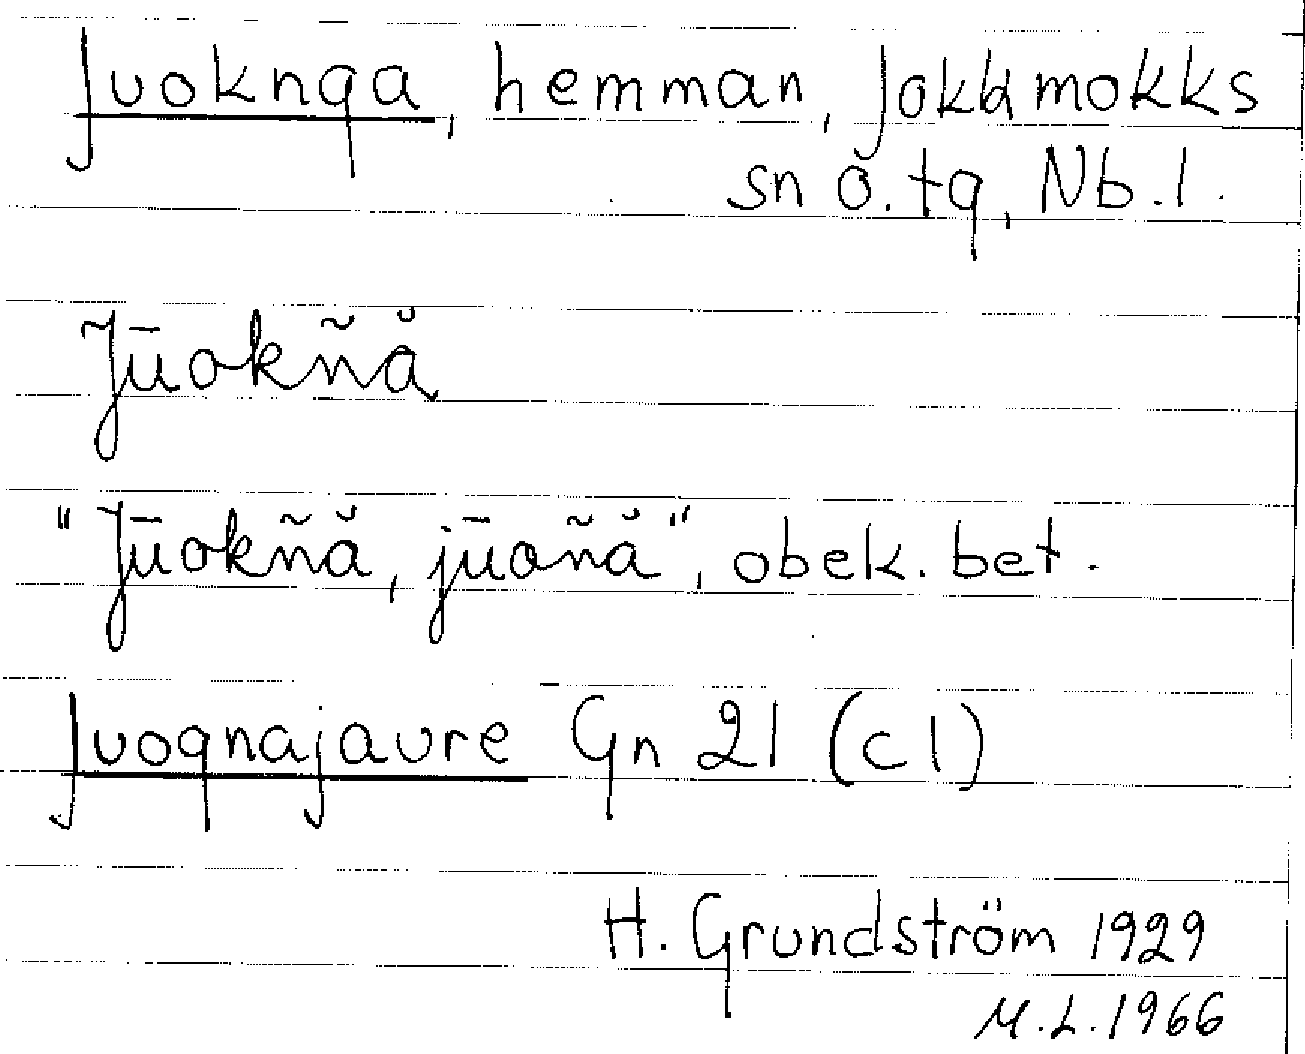 Juoknga, hemman, Jokkmokks
sn o. tg, Nb. l.
Jūokñ̆å
"Jūokñă, jūoñă", obek. bet.
Juognajaure Gn 21 (c1)
H. Grundström 1929
M.L. 1966